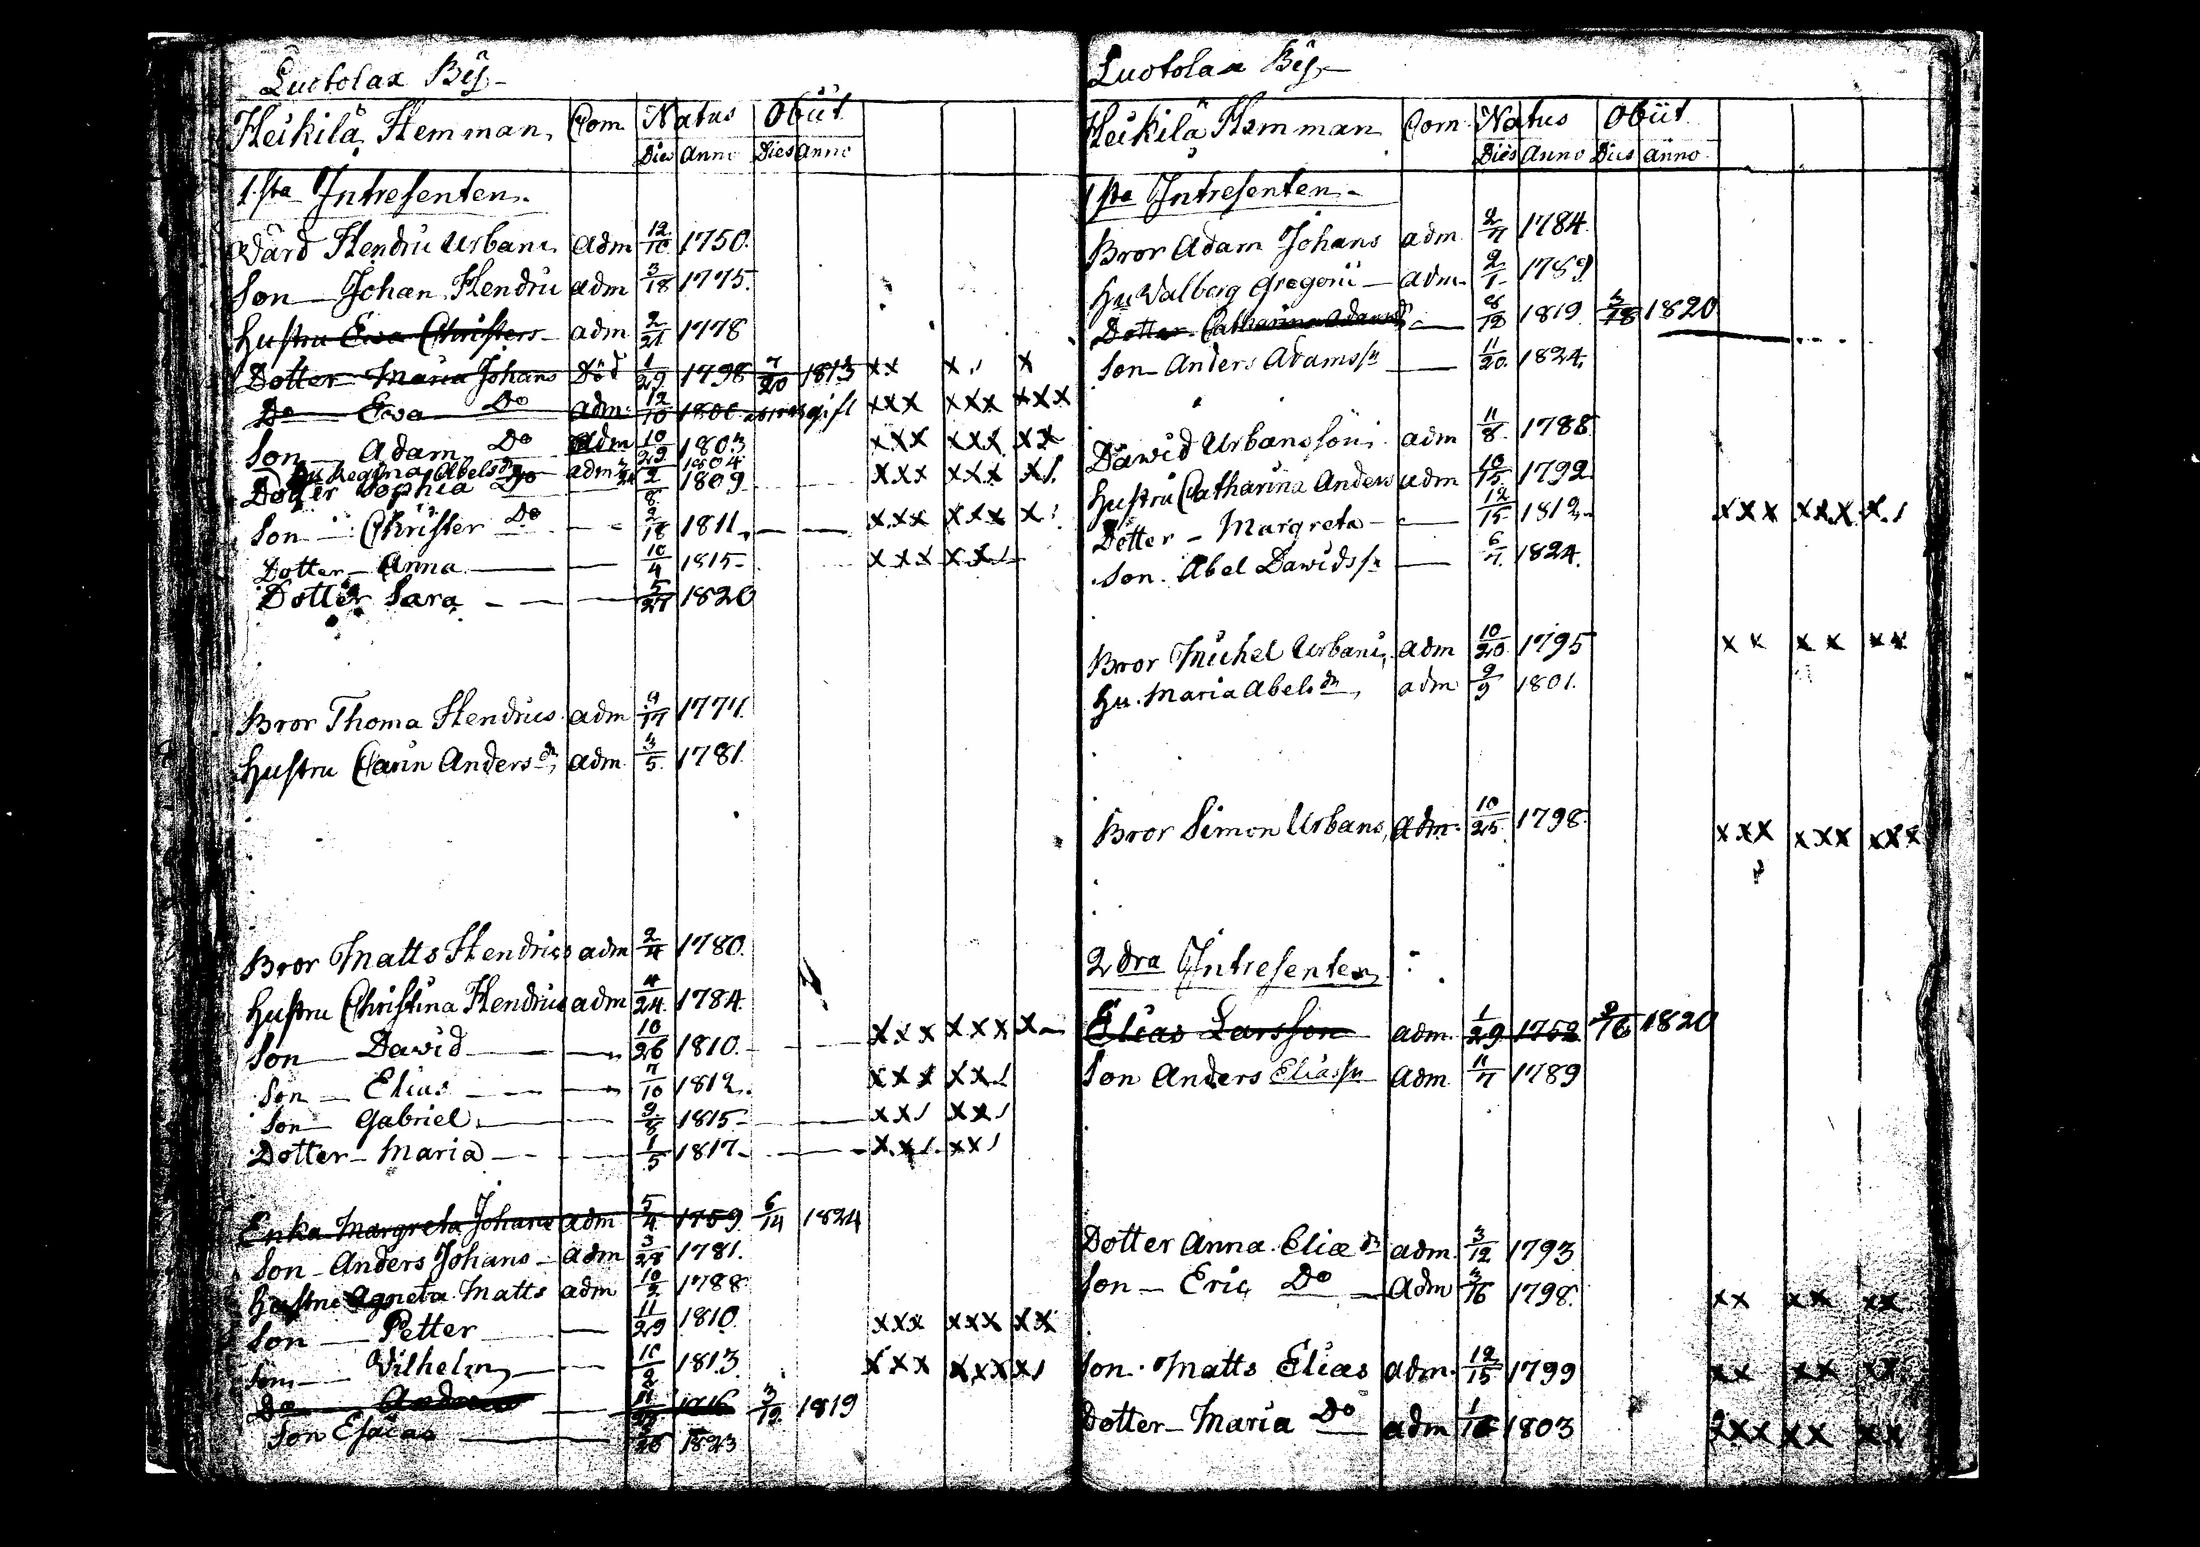 Luotolax Bÿ,
Heikilä Hemman, Com Natus Obiit
Dies Anno Dies anno
1:sta Intresenten.
Vård Hendric Urbani, adm 12/10 1750.
Son — Johan Hendric adm 3/18 1775.
Hustru Ewa Christers — adm 2/21 1778
Dotter — Maria Johans Död 1/29 1798 7/20 1813 xx x x
Do — Ewa Do adm 12/10 1800 gift xxx xxx xxx
Son — Adam Do adm 10/29 1803 xxx xxx xx
Hu Regina Abels dr adm 1804
Dotter Sophia Do 1809 xxx xxx x
Son — Christer Do — /18 1811 — — xxx xxx x
Dotter — Anna — — 10/4 1815 — xxx xx
Dotter Sara — — 5/27 1820
Bror Thoma Hendrics adm /17 1777.
Hustru Carin Anders dr, adm. 3/5 1781.
Bror Matts Hendrics adm 2/4 1780.
Hustru Christina Hendrics adm 4/24 1784.
Son — David — — 10/26 1810. — xxx xxx x
Son — Elias — — 7/10 1812. xxx xx
Son — Gabriel — — 9/8 1815 — xx xx
Dotter — Maria — — 1/5 1817 — — xx xx
Enka Margreta Johans adm 5/4 1759. 6/14 1824
Son — Anders Johans — adm 3/28 1781.
Hustru Agneta Matts adm 10/2 1788
Son — Petter — 11/29 1810 xxx xxx xx
Son — Vilhelm — 10/2 1813 xxx xxx x
Do — Anders — 11/ 1816 3/12 1819
Son Esaias — /20 1823
Luotolax Bÿ —
Heikilä Hemman Com Natus Obiit
Dies Anno Dies anno
1 sta Intresenten —
Bror Adam Johans adm. 2/7 1784.
Hu Valborg Gregorii — adm. 2/1 1789
Dotter Catharina Adams dr — /12 1819 3/18 1820
Son Anders Adamss n — 11/20 1824.
David Urbanssön adm 11/8 1788
Hustru Catharina Anders adm 10/15 1792
Dotter — Margreta — — 12/15 1812 xxx xxx x
Son. Abel Davidss n — 6/7 1824.
Bror Michel Urbani, adm 10/20 1795 xx xx xx
Hu. Maria Abels dr, adm 9/9 1801.
Bror Simon Urbans, adm. 10/25 1798. xxx xxx xxx
2 dra Intresenten
Elias Larsson adm. 1/29 1752 /16 1820
Son Anders Eliass n adm 11/7 1789
Dotter Anna Eliæ dr adm. 3/12 1793
Son — Eric Do — adm /16 1798. xx xx xx
Son. Matts Elias adm. 12/15 1799 xx xx xx
Dotter — Maria Do adm 1/16 1803 xx xx xx